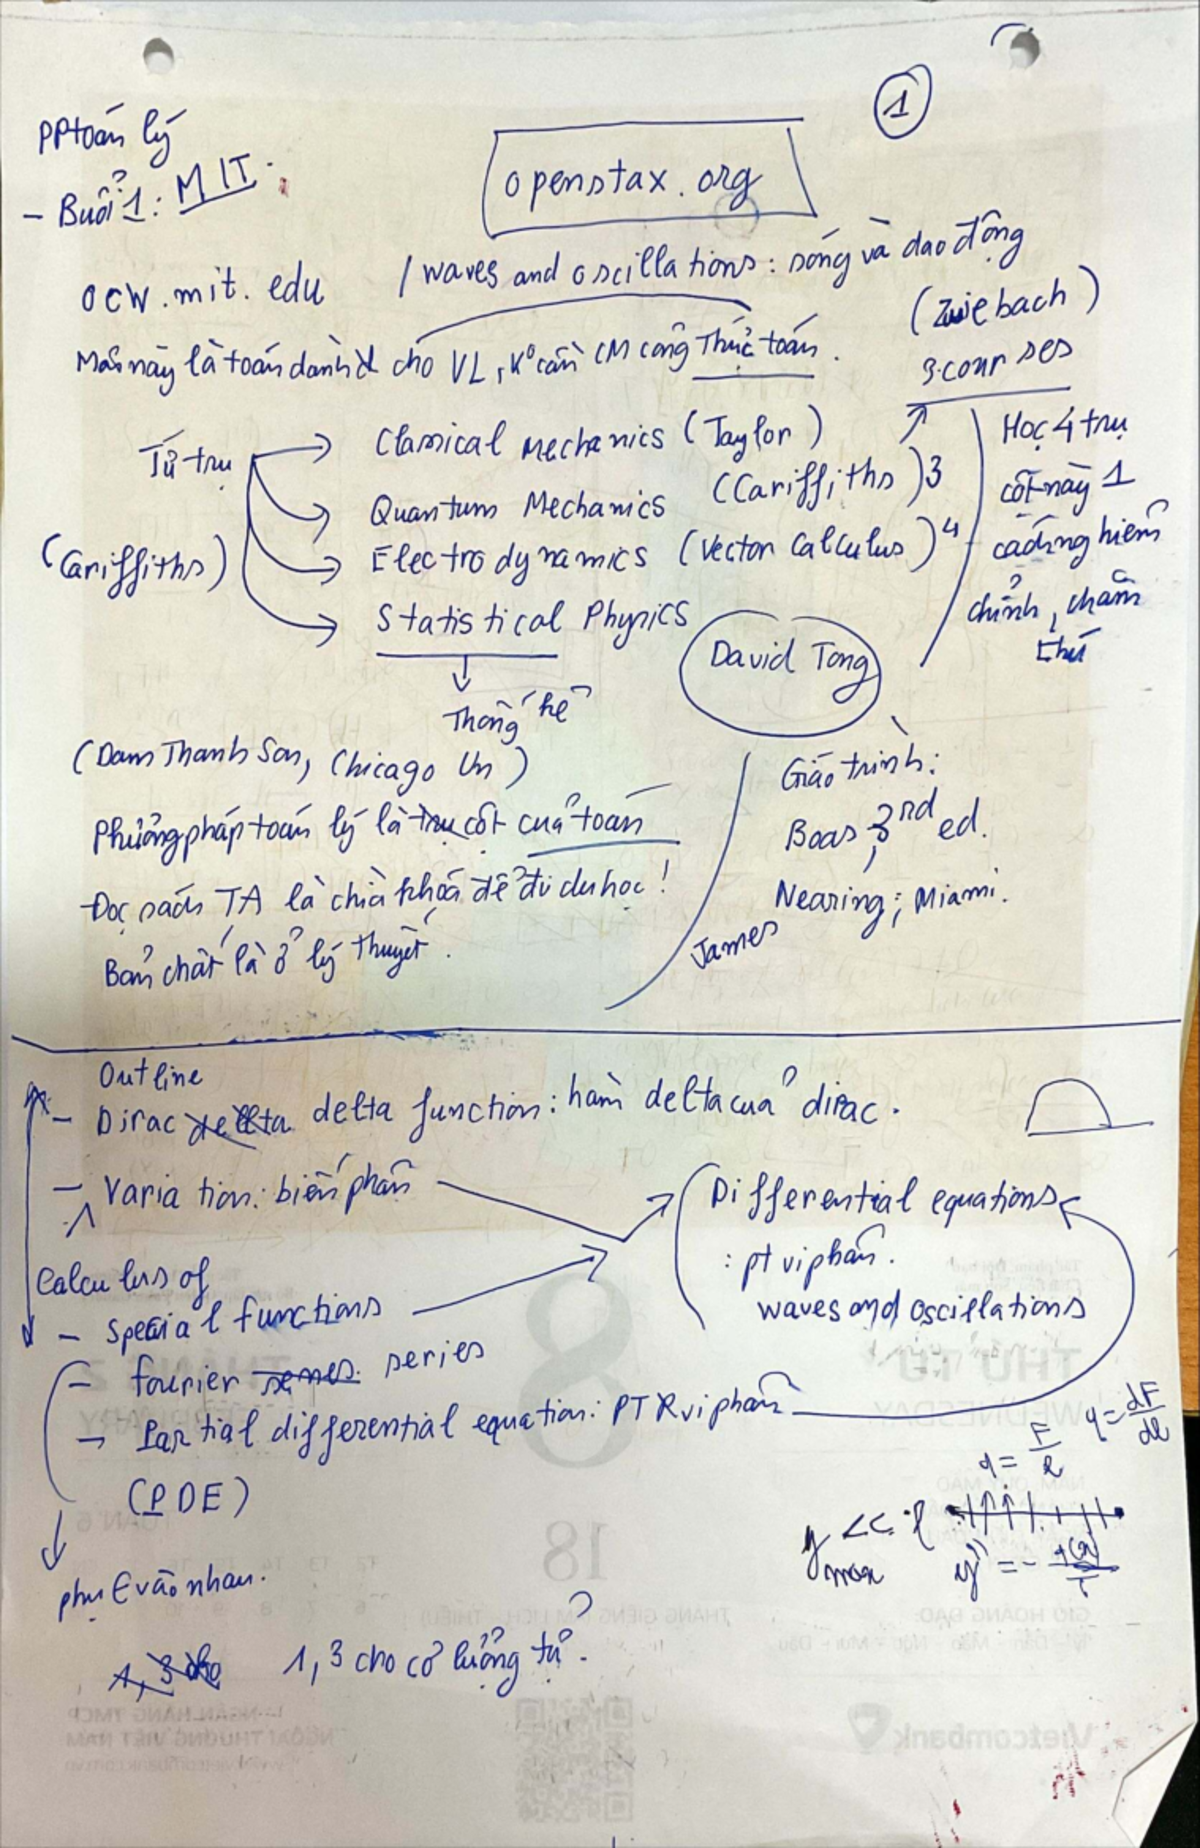 1
PP toán lý
- Buổi 1: MIT.
openstax.org
ocw.mit.edu / waves and oscillations: sóng và dao động
(Zwiebach)
3 courses
Môn này là toán dành cho VL, K° cần CM công thức toán.
Tứ trụ → Classical Mechanics (Taylor)
Quantum Mechanics (Griffiths) 3
(Griffiths) Electrodynamics (Vector Calculus) 4
Statistical Physics
Thống kê
David Tong
Học 4 trụ
cột này 1
cách nghiêm
chỉnh, chăm
chú
(Dam Thanh Son, Chicago Un)
Phương pháp toán lý là trụ cột của toán
Đọc sách TA là chìa khoá để đi du học!
Bản chất là ở lý thuyết.
Giáo trình:
Boas 3rd ed.
James Nearing; Miami.
Outline
- Dirac delta function: hàm delta của dirac.
- Variation: biến phân
Calculus of
- Special functions
Differential equations
: pt vi phân.
waves and oscillations
- fourier series
- Partial differential equation: PTR vi phân
(PDE)
phụ ∈ vào nhau.
q = F/ℓ
q = dF/dℓ
y max << ℓ
1, 3 cho cơ lượng tử.
8
18
Vietcombank